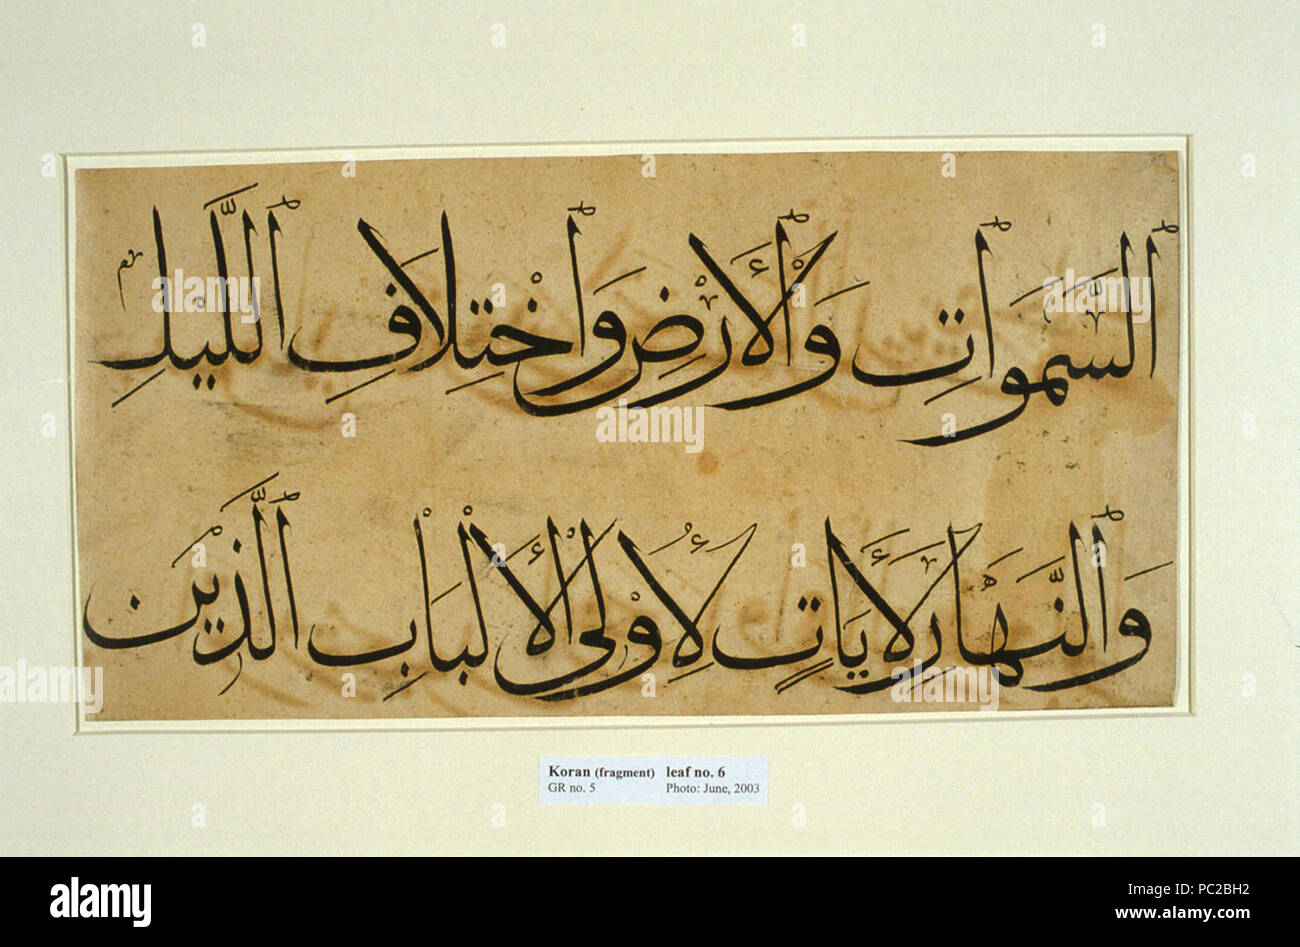 السَّمَوَاتِ وَالْأَرْضِ وَاخْتِلَافِ اللَّيْلِ
وَالنَّهَارِ لَأَيَاتٍ لِأُوْلِى الْأَلْبَابِ الَّذِيْنَ
Koran (fragment) leaf no. 6
GR no. 5 Photo: June, 2003
alamy
Image ID: PC2BH2
www.alamy.com